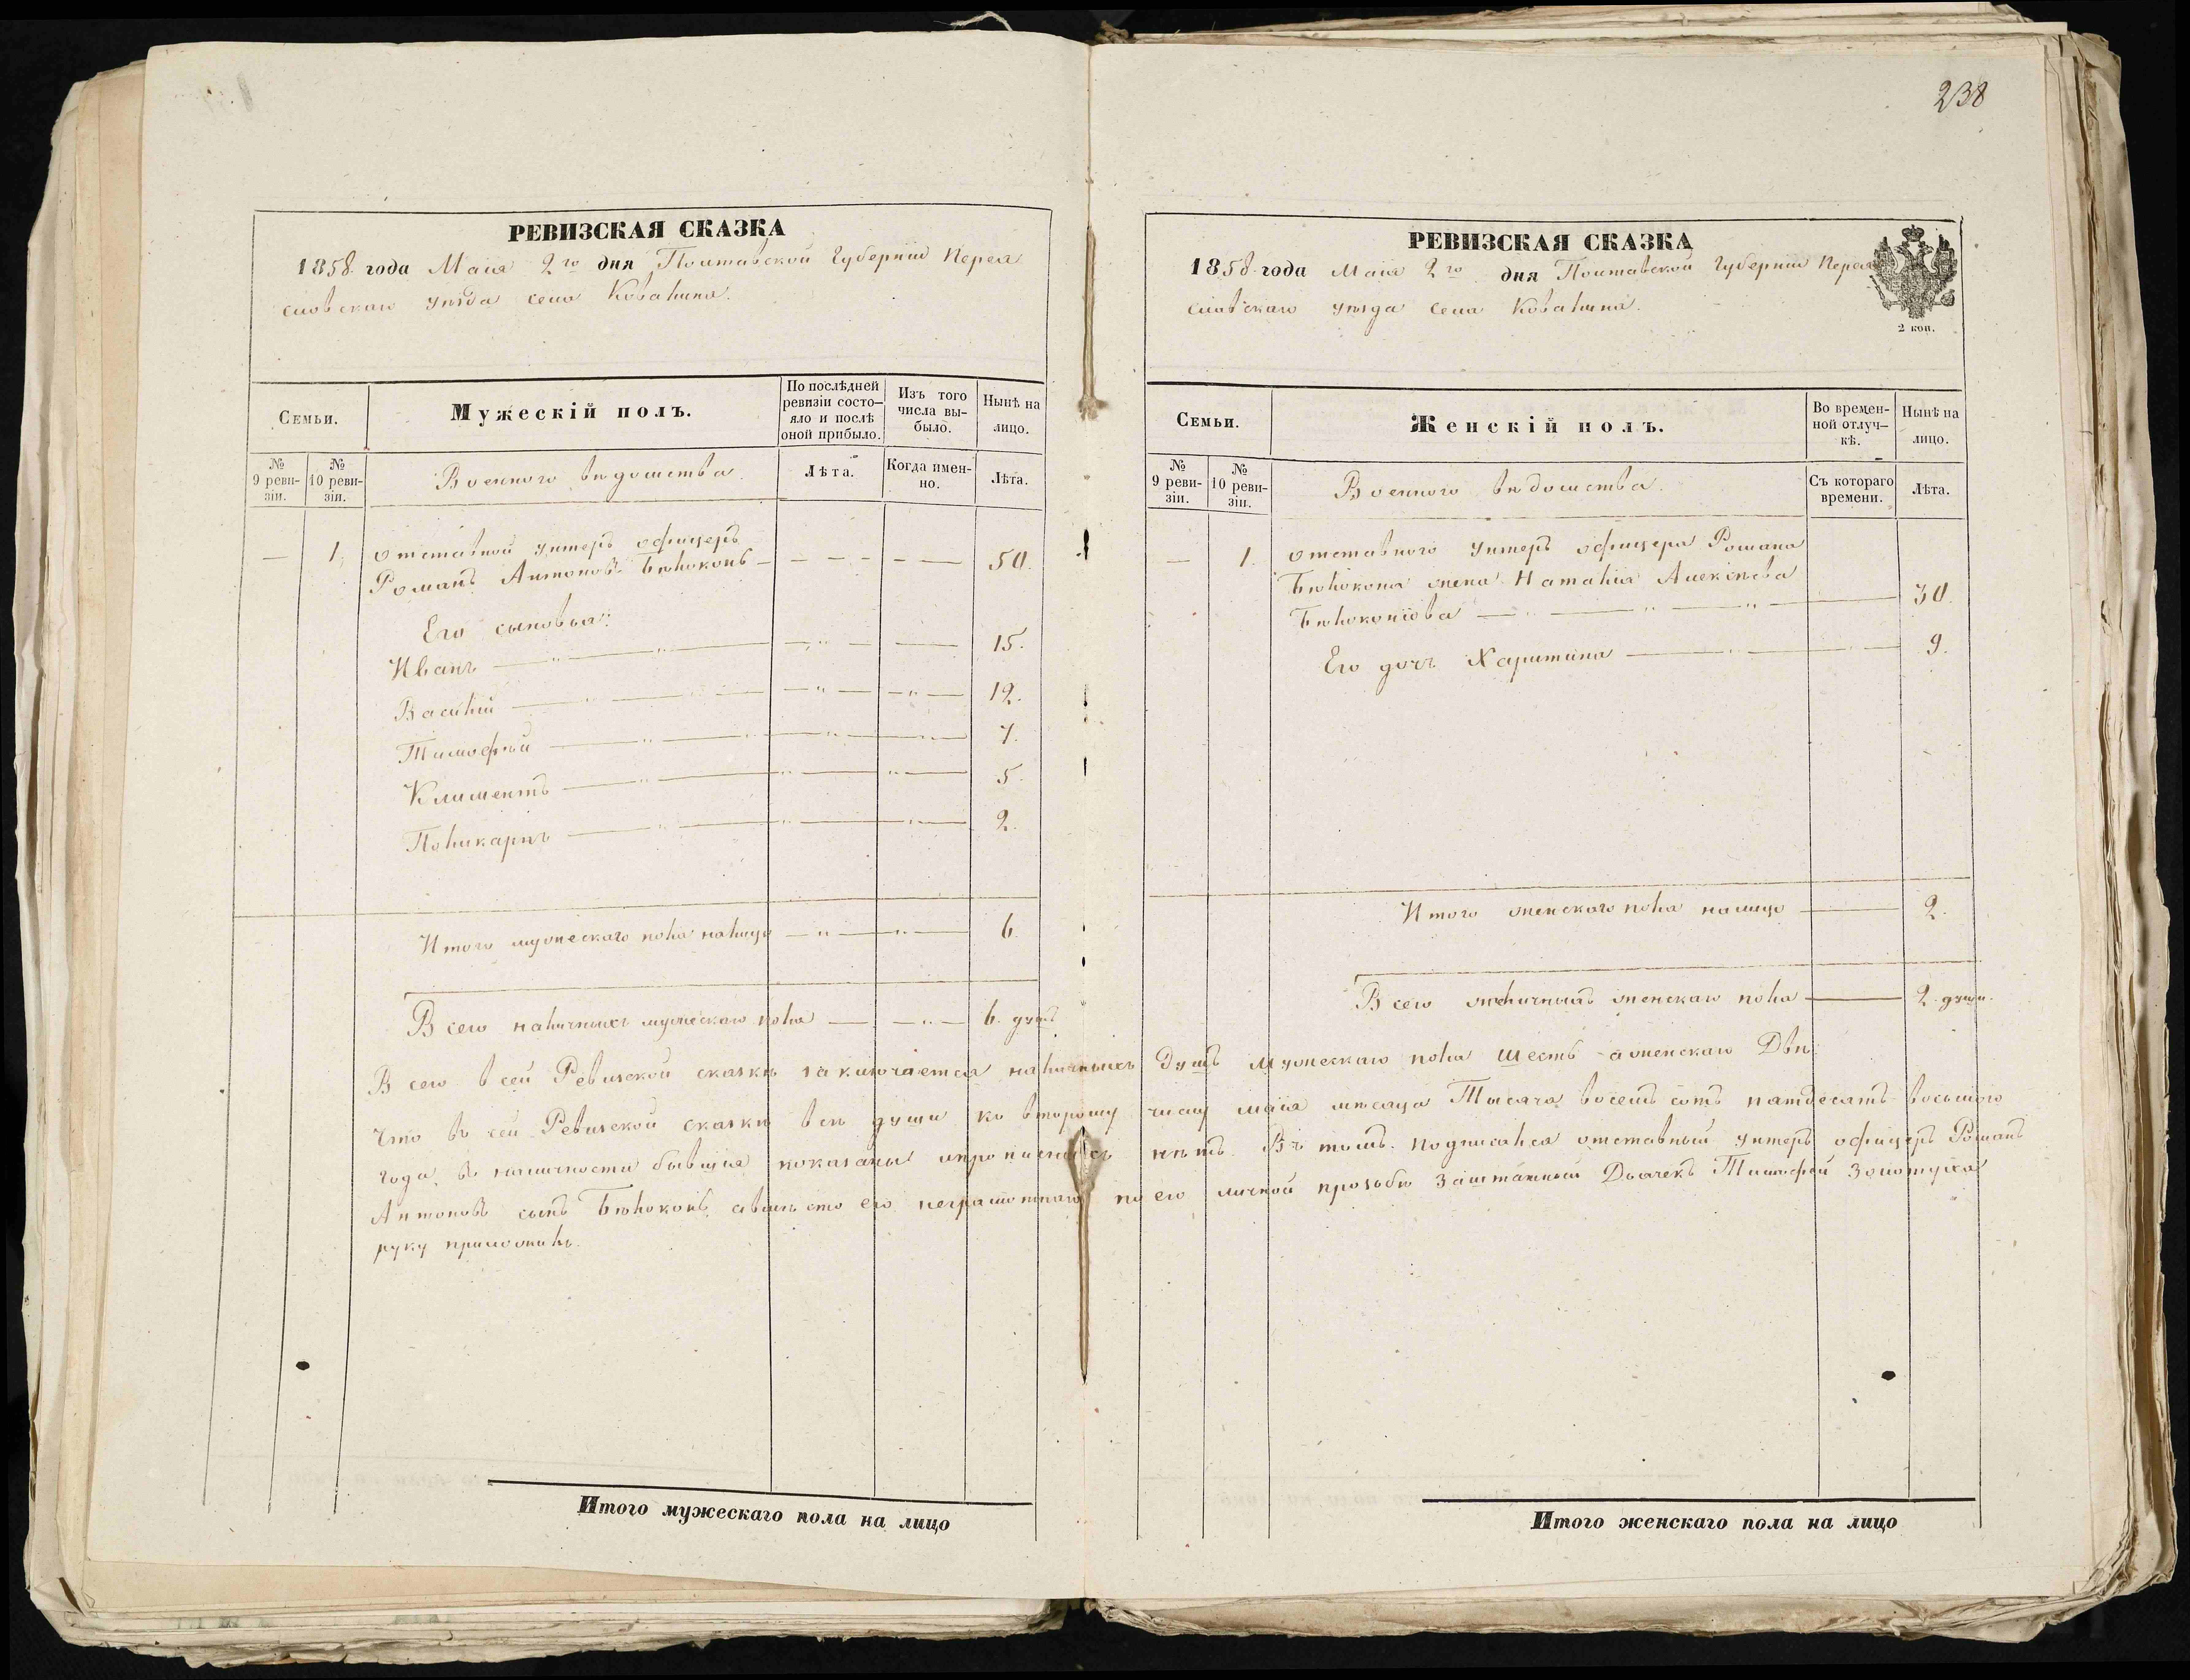 238
РЕВИЗСКАЯ СКАЗКА
1858 года Маія 2го дня Полтавской Губерніи Перея
словскаго уѣзда села Ковалина.
Семьи.
Мужескій полъ.
По послѣдней
ревизіи состо-
яло и послѣ
оной прибыло.
Изъ того
числа вы-
было.
Нынѣ на
лицо.
№
9 реви-
зіи.
№
10 реви-
зіи.
Военного вѣдомства
Лѣта.
Когда имен-
но.
Лѣта.
— 1. отставной унтеръ офицеръ
Романъ Антоновъ Бѣлоконь — 50.
Его сыновья:
Иванъ — 15.
Василій — 12.
Тимофѣй — 7.
Климентъ — 5.
Поликарпъ — 2.
Итого мужескаго пола налицо — 6.
Всего наличныхъ мужескаго пола — 6. душъ
РЕВИЗСКАЯ СКАЗКА
1858 года Маія 2го дня Полтавской Губерніи Перея
словскаго уѣзда села Ковалина.
2 коп.
Семьи.
Женскій полъ.
Во времен-
ной отлуч-
кѣ.
Нынѣ на
лицо.
№
9 реви-
зіи.
№
10 реви-
зіи.
Военного вѣдомства.
Съ котораго
времени.
Лѣта.
— 1. отставного унтеръ офицера Романа
Бѣлоконя жена Наталія Алексѣева
Бѣлоконіова — 30.
Его дочь Харитина — 9.
Итого женскаго пола налицо — 2.
Всего женскаго пола — 2. души.
Всего в сей Ревизской сказкѣ заключается наличныхъ Душъ мужескаго пола шесть а женскаго Двѣ
Что въ сей Ревизской сказкѣ всѣ души ко второму числу маія мѣсяца Тысяча восемь сотъ пятдесятъ восьмого
года, въ наличности бывшія показаны нѣтъ. Въ томъ подписался отставный унтеръ офицеръ Романъ
Антоновъ сынъ Бѣлоконь, а вмѣсто его неграмотнаго по его личной прозьбѣ заштатный Дьячекъ Тимофей Золотуха
руку приложилъ.
Итого мужескаго пола на лицо
Итого женскаго пола на лицо